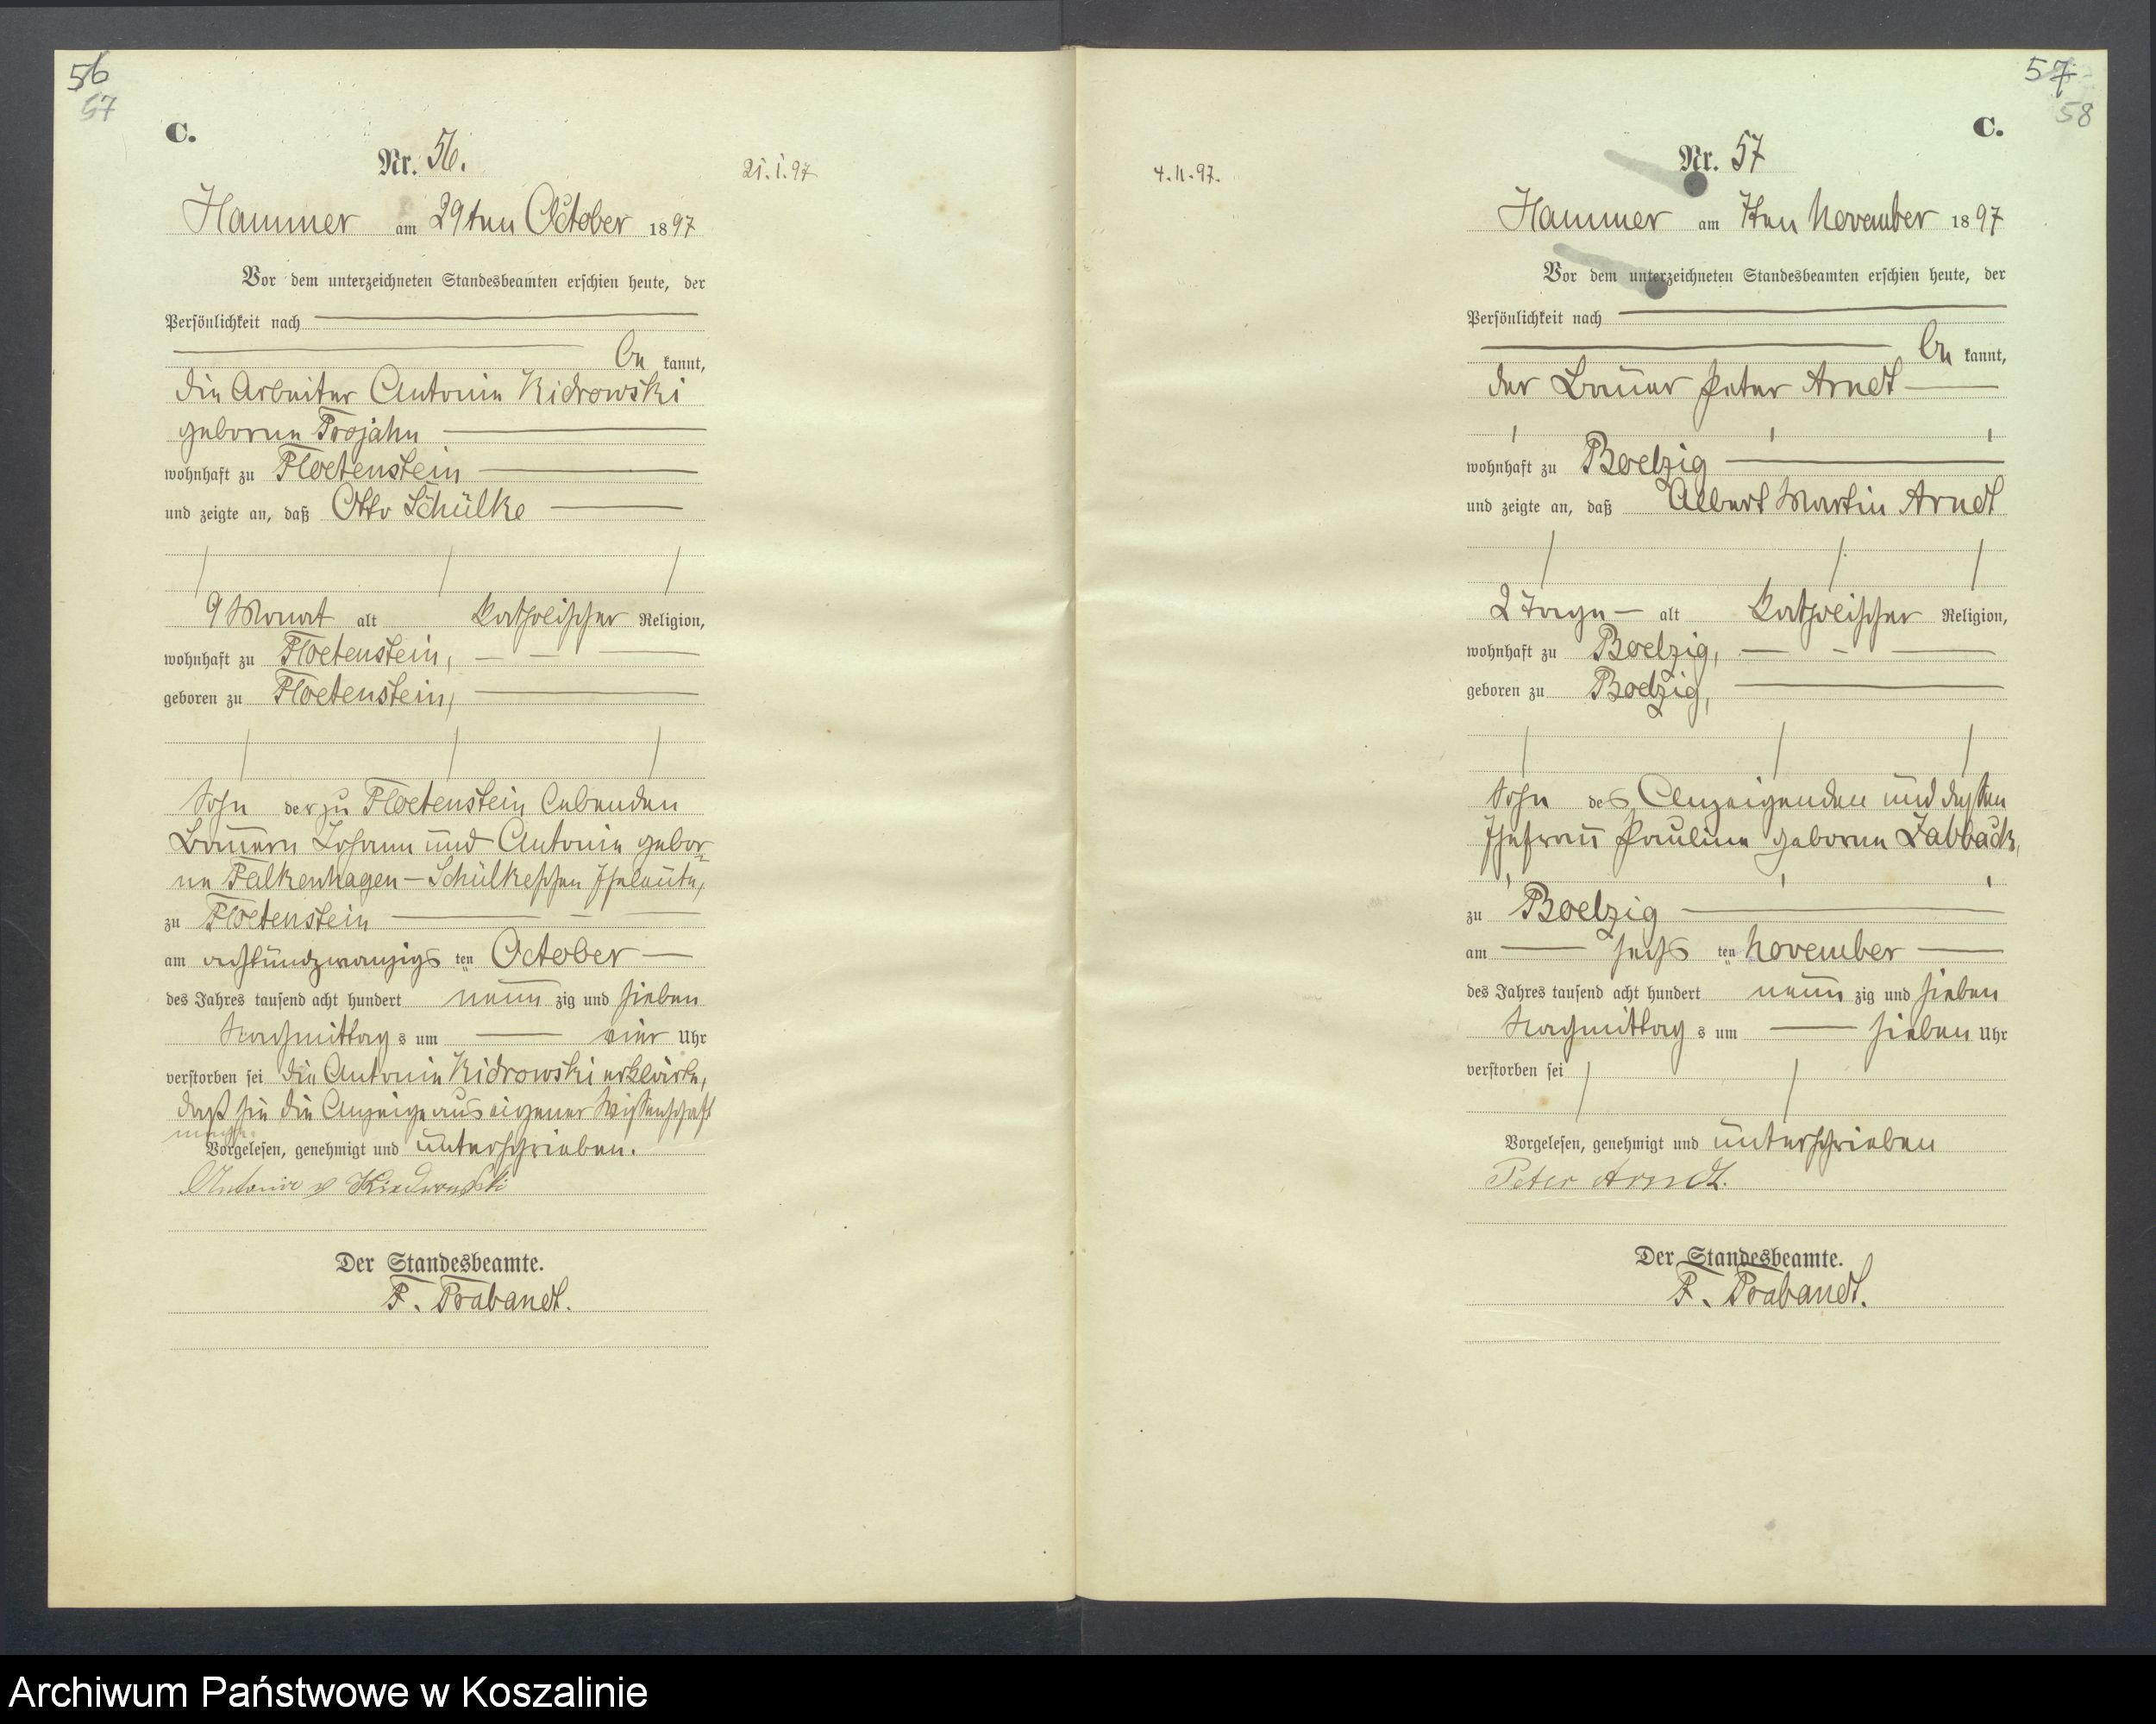 56
57
C.
Nr. 56.
21.1.97
Hammer am 29ten October 1897
Vor dem unterzeichneten Standesbeamten erschien heute, der
Persönlichkeit nach
be kannt,
die Arbeiter Antonie Kidrowski
geborne Trojahn
wohnhaft zu Floetenstein
und zeigte an, daß Otto Schülke
9 Monat alt katholischer Religion,
wohnhaft zu Floetenstein,
geboren zu Floetenstein,
Sohn der zu Floetenstein lebenden
Bauern Johann und Antonie gebor-
ne Falkenhagen - Schülkeschen Eheleute,
zu Floetenstein
am achtundzwanzigs ten October
des Jahres tausend acht hundert neun zig und sieben
Nachmittag s um vier Uhr
verstorben sei die Antonie Kidrowski erklärte,
daß sie die Anzeige aus eigener Wissenschaft
mache.
Vorgelesen, genehmigt und unterschrieben.
Antonie v Kiedrowski
Der Standesbeamte.
F. Trabandt.
57
58
C.
4.11.97.
Nr. 57
Hammer am 7ten November 1897
Vor dem unterzeichneten Standesbeamten erschien heute, der
Persönlichkeit nach
be kannt,
der Bauer Peter Arndt
wohnhaft zu Boelzig
und zeigte an, daß Albert Martin Arndt
2 Tage alt katholischer Religion,
wohnhaft zu Boelzig,
geboren zu Boelzig,
Sohn des Anzeigenden und dessen
Ehefrau Pauline geborne Zabback,
zu Boelzig
am sechs ten November
des Jahres tausend acht hundert neun zig und sieben
Nachmittag s um sieben Uhr
verstorben sei
Vorgelesen, genehmigt und unterschrieben
Peter Arndt.
Der Standesbeamte.
F. Trabandt.
Archiwum Państwowe w Koszalinie